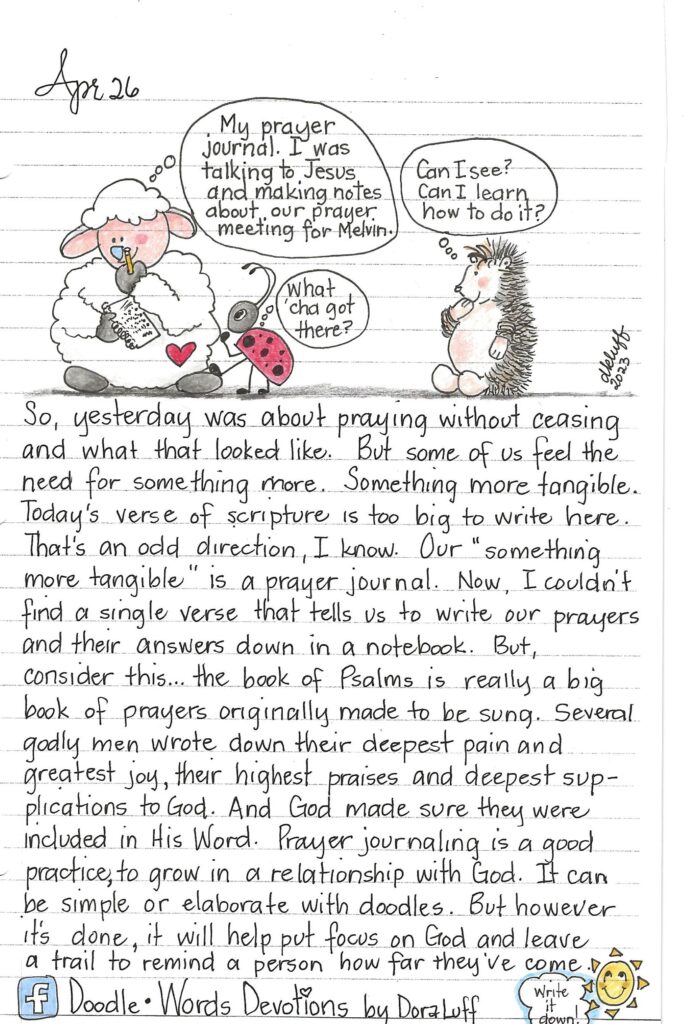 Apr 26
My prayer
journal. I was
talking to Jesus
and making notes
about our prayer
meeting for Melvin.
Can I see?
Can I learn
how to do it?
What
'cha got
there?
dkluff
2023
So, yesterday was about praying without ceasing
and what that looked like. But some of us feel the
need for something more. Something more tangible.
Today's verse of scripture is too big to write here.
That's an odd direction, I know. Our "something
more tangible" is a prayer journal. Now, I couldn't
find a single verse that tells us to write our prayers
and their answers down in a notebook. But,
consider this... the book of Psalms is really a big
book of prayers originally made to be sung. Several
godly men wrote down their deepest pain and
greatest joy, their highest praises and deepest sup-
plications to God. And God made sure they were
included in His Word. Prayer journaling is a good
practice, to grow in a relationship with God. It can
be simple or elaborate with doodles. But however
it's done, it will help put focus on God and leave
a trail to remind a person how far they've come.
f Doodle • Words Devotions by Dora Luff
Write
it
down!